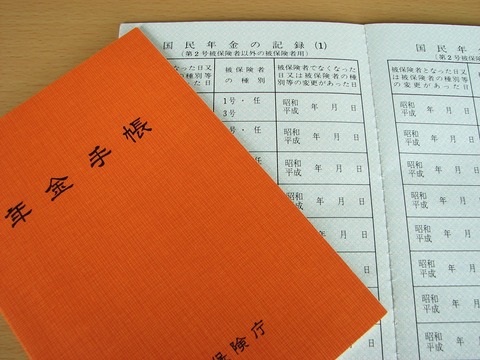 年金手帳
保険庁
国民年金の記録(1)
(第2号被保険者以外の被保険者用)
被保険者
の種別
被保険者でなくなった
日又は被保険者の種
別等の変更があった日
1号・任
3号
昭和
平成
年 月 日
号・任
昭和
平成
年 月 日
・任
昭和
平成
年 月 日
任
昭和
平成
年 月 日
昭和
平成
年 月 日
月 日
月 日
日
国民年
(第2号被保険
被保険者となった日又
は被保険者の種別等
の変更があった日
昭和
平成
年 月 日
昭和
平成
年 月 日
昭和
平成
年 月 日
昭和
平成
年 月 日
昭和
平成
年 月 日
昭和
平成
年 月 日
昭和
平成
年 月
昭和
平成
年 月